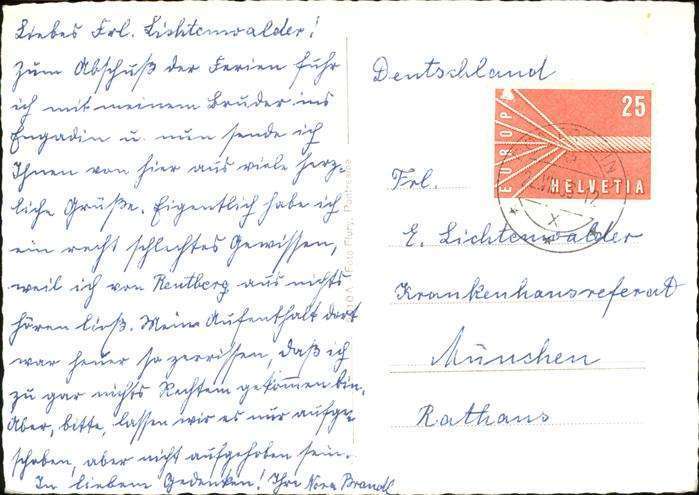 Liebes Frl. Lichtenwalder!
Zum Abschuß der Ferien fuhr
ich mit meinem Bruder ins
Engadin u. nun sende ich
Ihnen von hier aus viele herz-
liche Grüße. Eigentlich habe ich
ein recht schlechtes Gewissen,
weil ich von Rentberg aus nichts
hören ließ. Mein Aufenthalt dort
war heuer so zerrissen, daß ich
zu gar nichts Rechtem gekommen bin.
Aber, bitte, lassen wir es nur aufge-
schoben, aber nicht aufgehoben sein.
In liebem Gedenken! Ihre Nora Brandl
Deutschland
EUROPA
25
HELVETIA
Frl.
E. Lichtenwalder
Krankenhausreferat
München
Rathaus